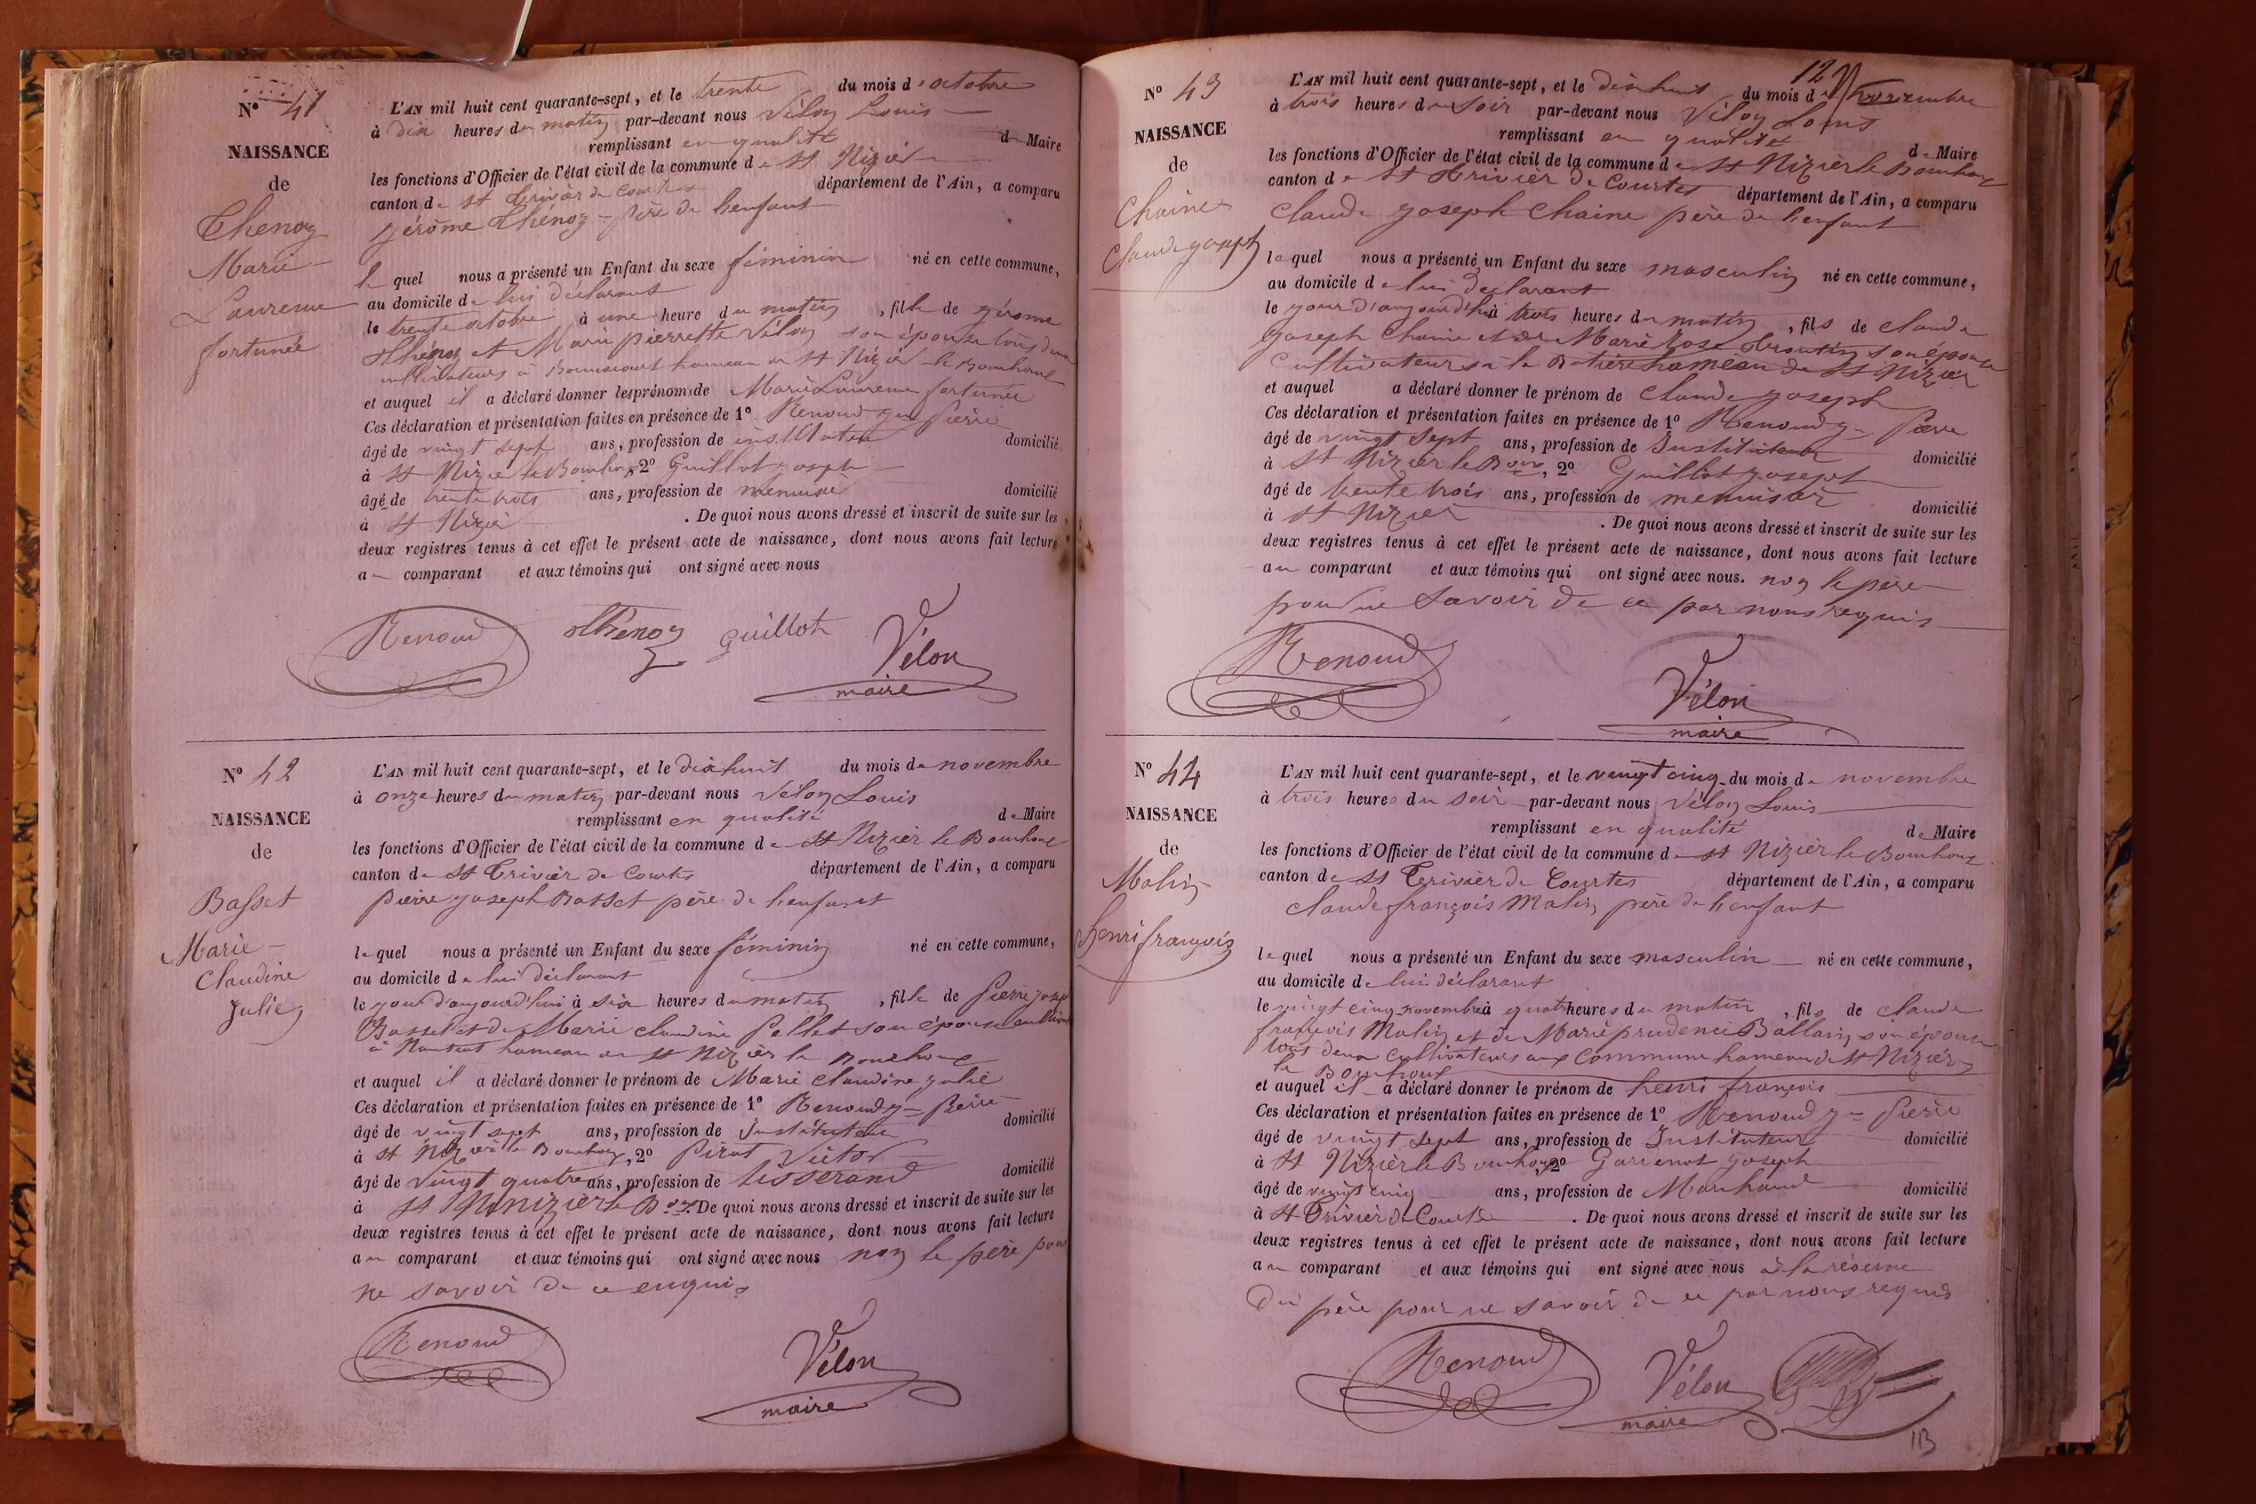 N° 41
NAISSANCE
de
Thenoz
Marie
Laurence
fortunée
L'AN mil huit cent quarante-sept, et le trente du mois d'octobre
à dix heures du matin par-devant nous Vélon Louis
remplissant en qualité de Maire
les fonctions d'Officier de l'état civil de la commune de St Nizier
canton de St Trivier de Courtes département de l'Ain, a comparu
gérôme Thénoz père de l'enfant
le quel nous a présenté un Enfant du sexe féminin né en cette commune,
au domicile de lui déclarant
le trente octobre à une heure du matin, fille de gérome
Thénoz et Marie pierrette Vélon son épouse tous deux
cultivateurs à hameau de St Nizier le Bouchoux
et auquel il a déclaré donner les prénoms de Marie Laurence fortunée
Ces déclaration et présentation faites en présence de 1° Renoud gn pierre
âgé de vingt sept ans, profession de instituteur domicilié
à St Nizier le Bouchoux, 2° Guillot joseph
âgé de trente trois ans, profession de menuisier domicilié
à St Nizier . De quoi nous avons dressé et inscrit de suite sur les
deux registres tenus à cet effet le présent acte de naissance, dont nous avons fait lecture
au comparant et aux témoins qui ont signé avec nous
Renoud Thenoz guillot Vélon
maire
N° 42
NAISSANCE
de
Basset
Marie
Claudine
Julie
L'AN mil huit cent quarante-sept, et le dix huit du mois de novembre
à onze heures du matin par-devant nous Vélon Louis
remplissant en qualité de Maire
les fonctions d'Officier de l'état civil de la commune de St Nizier le Bouchoux
canton de St Trivier de Courtes département de l'Ain, a comparu
pierre joseph Basset père de l'enfant
le quel nous a présenté un Enfant du sexe féminin né en cette commune,
au domicile de lui déclarant
le jour d'aujourd'hui à six heures du matin, fille de pierre joseph
Basset et de Marie claudine pellet son épouse
à hameau de St Nizier le Bouchoux
et auquel il a déclaré donner le prénom de Marie claudine julie
Ces déclaration et présentation faites en présence de 1° Renoud gn pierre
âgé de vingt sept ans, profession de Instituteur domicilié
à St Nizier le Bouchoux, 2° pirat Victor
âgé de vingt quatre ans, profession de tisserand domicilié
à St Nizier le Boux. De quoi nous avons dressé et inscrit de suite sur les
deux registres tenus à cet effet le présent acte de naissance, dont nous avons fait lecture
au comparant et aux témoins qui ont signé avec nous non le père pour
ne savoir de ce enquis
Renoud Vélon
maire
12
N° 43
NAISSANCE
de
Chaine
Claude joseph
L'AN mil huit cent quarante-sept, et le dix huit du mois de novembre
à trois heures du soir par-devant nous Vélon Louis
remplissant en qualité de Maire
les fonctions d'Officier de l'état civil de la commune de St Nizier le Bouchoux
canton de St Trivier de Courtes département de l'Ain, a comparu
claude joseph chaine père de l'enfant
le quel nous a présenté un Enfant du sexe masculin né en cette commune,
au domicile de lui déclarant
le jour d'aujourd'hui à trois heures du matin, fils de claude
joseph chaine et de Marie rose son épouse
cultivateurs à la hameau de St Nizier
et auquel a déclaré donner le prénom de claude joseph
Ces déclaration et présentation faites en présence de 1° Renoud gn pierre
âgé de vingt sept ans, profession de Instituteur domicilié
à St Nizier le Boux, 2° Guillot joseph
âgé de trente trois ans, profession de menuisier domicilié
à St Nizier . De quoi nous avons dressé et inscrit de suite sur les
deux registres tenus à cet effet le présent acte de naissance, dont nous avons fait lecture
au comparant et aux témoins qui ont signé avec nous. non le père
pour ne savoir de ce par nous requis
Renoud Vélon
maire
N° 44
NAISSANCE
de
Malin
henri françois
L'AN mil huit cent quarante-sept, et le vingt cinq du mois de novembre
à trois heures du soir par-devant nous Vélon Louis
remplissant en qualité de Maire
les fonctions d'Officier de l'état civil de la commune de St Nizier le Bouchoux
canton de St Trivier de Courtes département de l'Ain, a comparu
claude françois Malin père de l'enfant
le quel nous a présenté un Enfant du sexe masculin né en cette commune,
au domicile de lui déclarant
le vingt cinq novembre à quatre heures du matin, fils de claude
françois Malin et de Marie prudence Ballain son épouse
tous deux cultivateurs aux Commune hameau de St Nizier
le Bouchoux
et auquel il a déclaré donner le prénom de henri françois
Ces déclaration et présentation faites en présence de 1° Renoud gn pierre
âgé de vingt sept ans, profession de Instituteur domicilié
à St Nizier le Bouchoux, 2° joseph
âgé de vingt cinq ans, profession de Marchand domicilié
à St Trivier de Courtes . De quoi nous avons dressé et inscrit de suite sur les
deux registres tenus à cet effet le présent acte de naissance, dont nous avons fait lecture
au comparant et aux témoins qui ont signé avec nous à la réserve
du père pour ne savoir de ce par nous requis
Renoud Vélon
maire